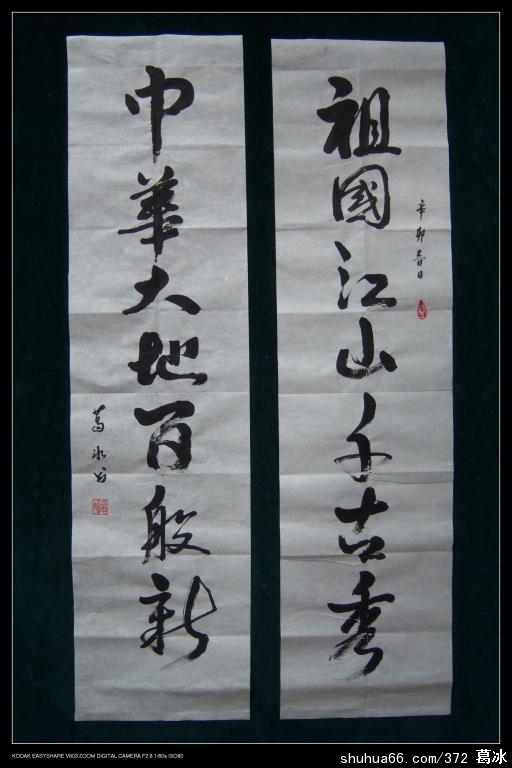 祖國江山千古秀
辛卯春日
中華大地百般新
葛冰书
KODAK EASYSHARE V803 ZOOM DIGITAL CAMERA F2.8 1/60s ISO80
shuhua66.com/372 葛冰